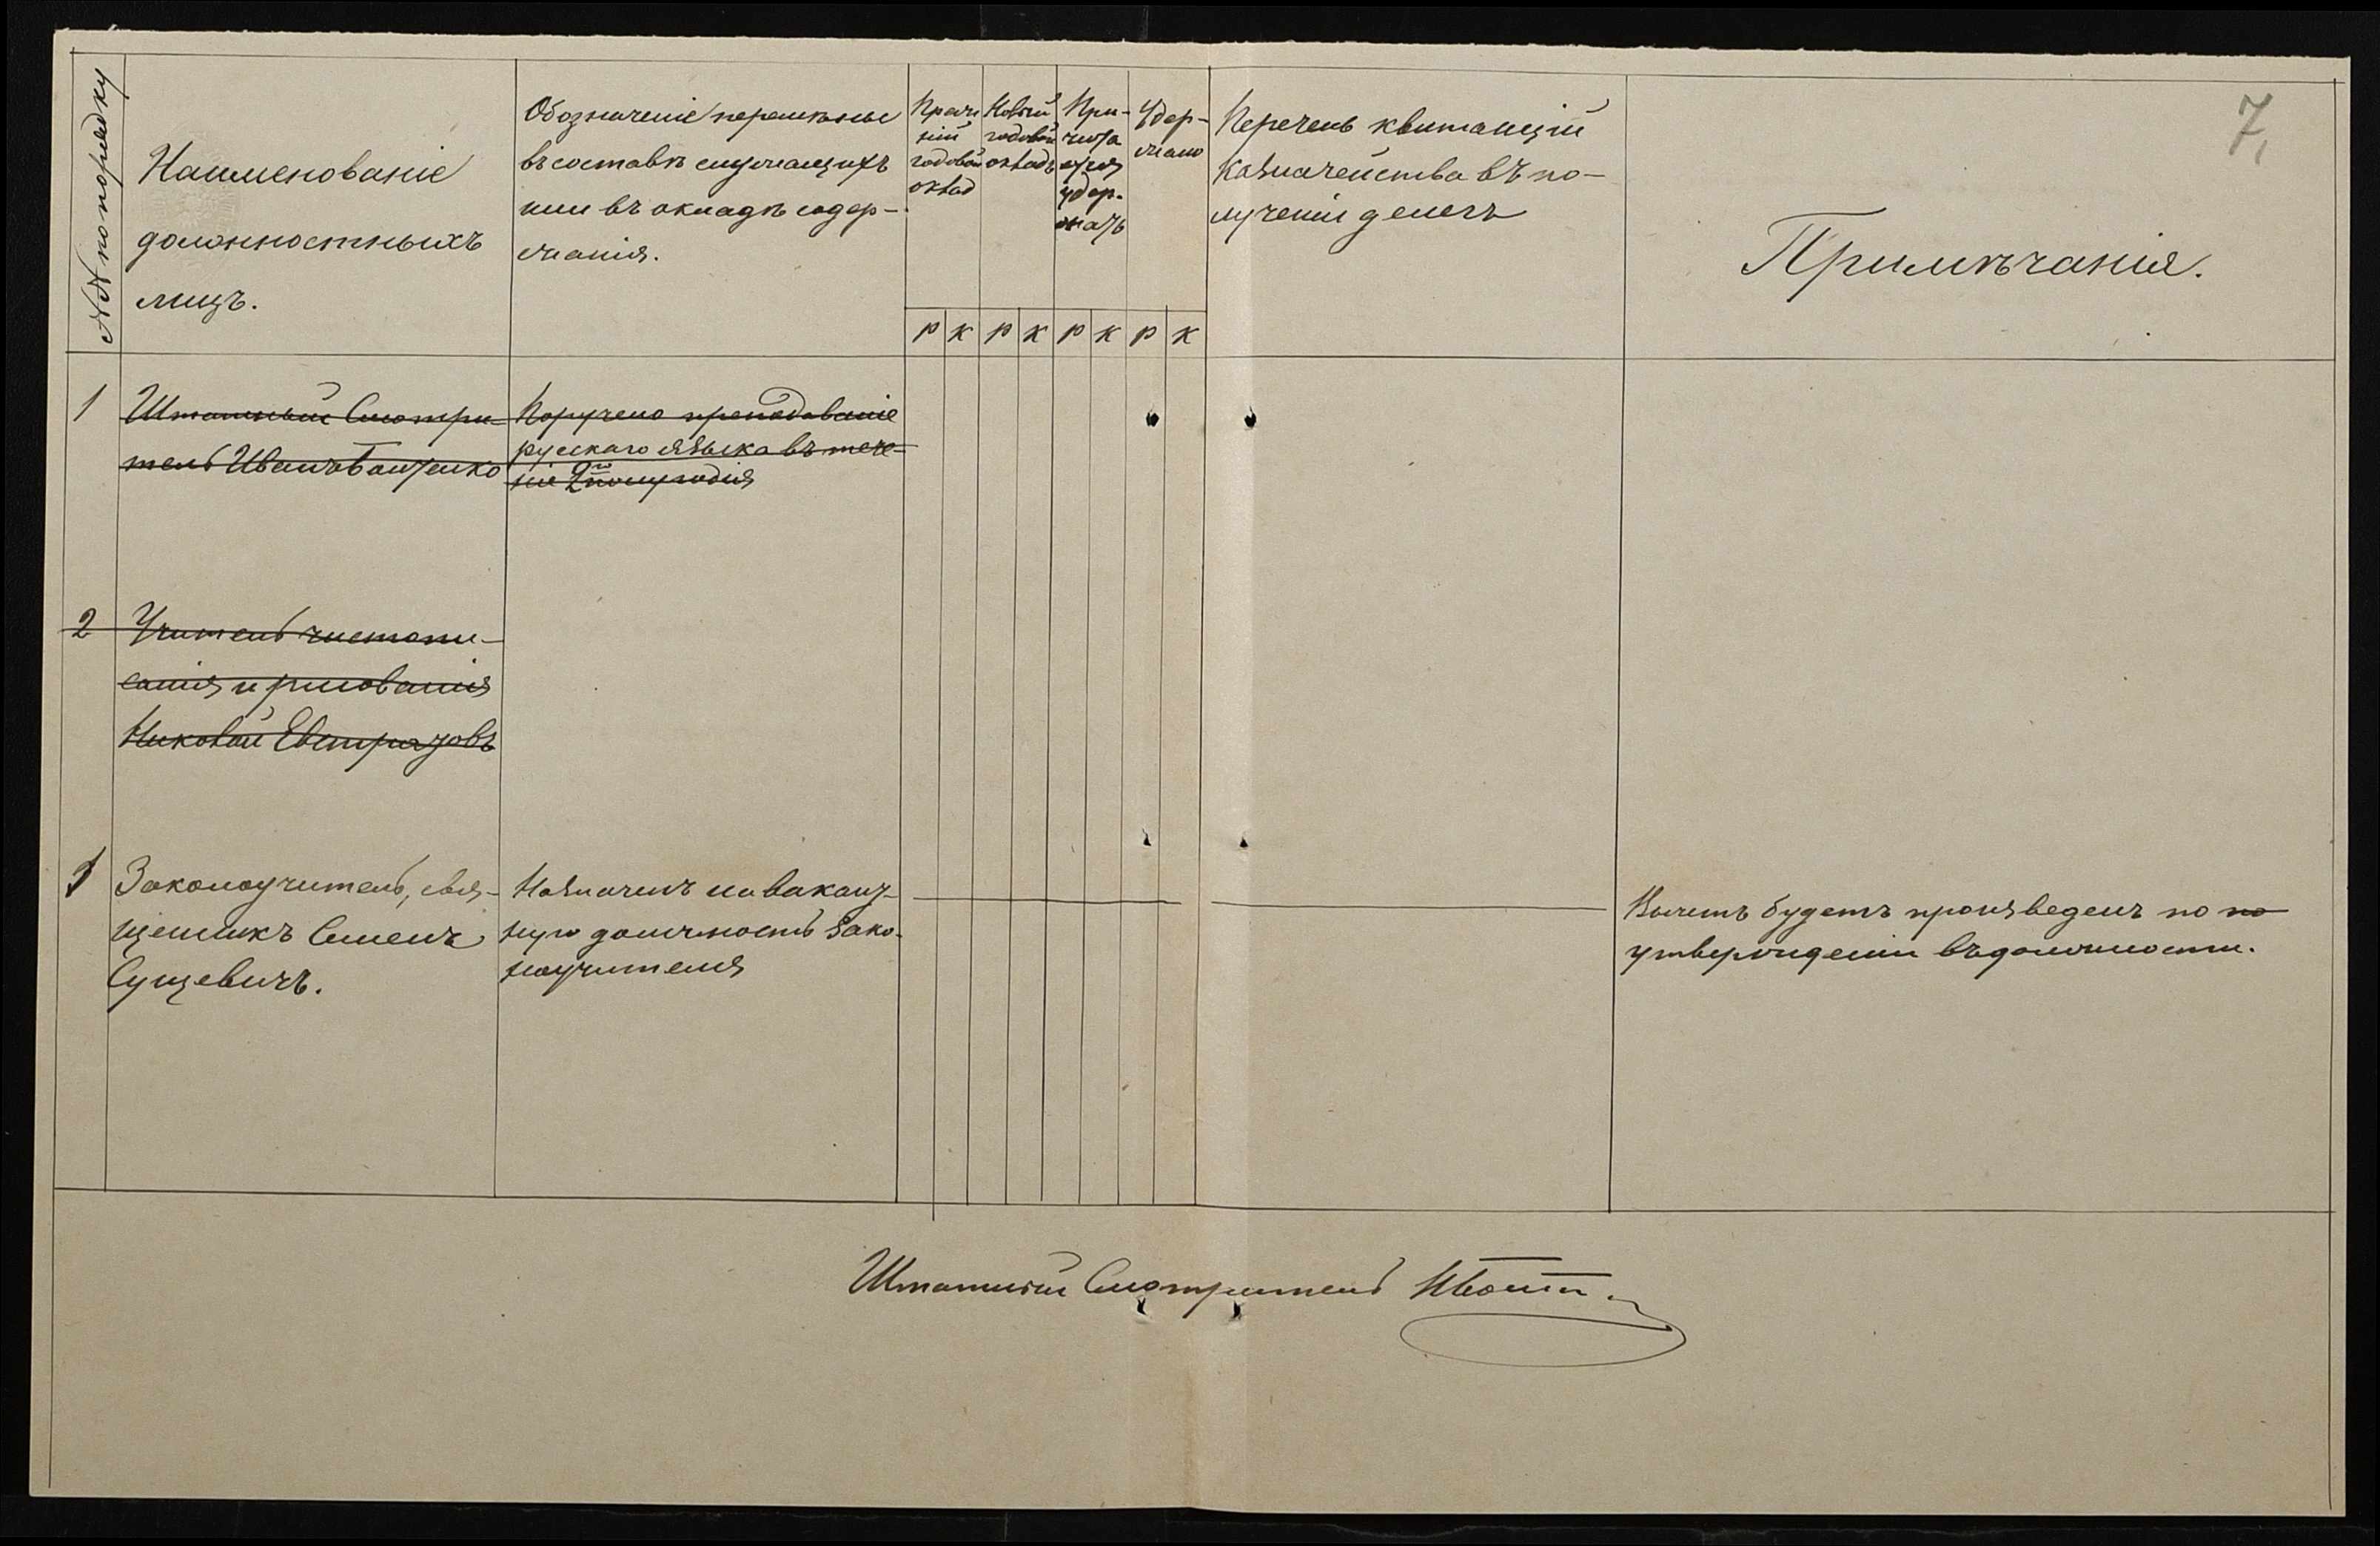 7
№№ по порядку
Наименованіе
должностныхъ
лицъ.
Обозначеніе перемѣны
въ составѣ служащихъ
или въ окладѣ содер-
жанія.
Преж
ній
годовой
оклад
Новый
годовой
окладъ
При-
чита
ется
удер-
жать
Удер-
жано
Перечень квитанцій
Казначейства въ по-
лученіи денегъ
Примѣчанія.
р к р к р к р к
1
Штатный Смотри-
тель Иванъ
Поручено преподаваніе
русскаго языка въ тече-
ніе 2го полугодія
2
Учитель чистопи-
санія и рисованія
Николай Евстратовъ
Законоучитель, свя-
щенникъ Симеонъ
Сущевичъ.
Назначенъ на вакант-
ную должность Зако-
ноучителя
Вычетъ будетъ произведенъ по по
утвержденіи въ должности.
Штатный Смотритель